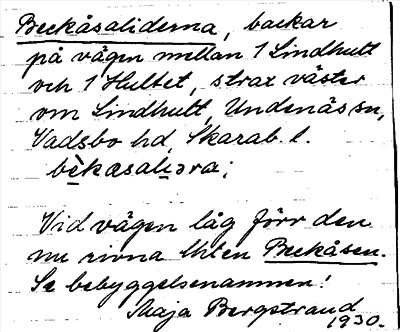 Beckåsaliderna, backar
på vägen mellan 1 Lindhult
och 1 Hultet, strax väster
om Lindhult, Undenäs sn,
Vadsbo hd, Skarab. l.
bèkasaliəra;
Vid vägen låg förr den
nu rivna Uhlen Beckåsen.
Se bebyggelsenamnen!
Maja Bergstrand
1930.